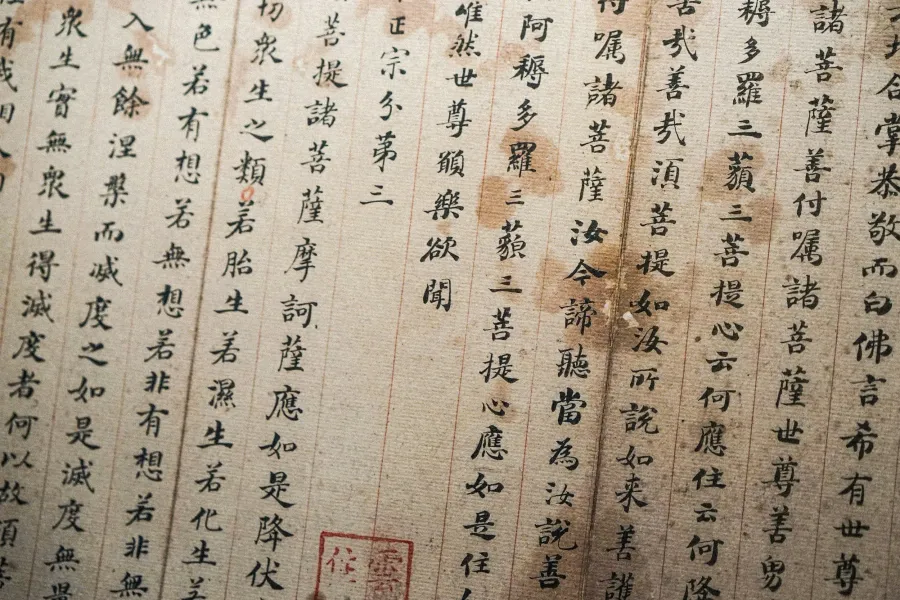 地合掌恭敬而白佛言希有世尊
諸菩薩善付嘱諸菩薩世尊善男
耨多羅三藐三菩提心云何應住云何降
善哉善哉須菩提如汝所說如来善護
付嘱諸菩薩汝今諦聽當為汝說善
阿耨多羅三藐三菩提心應如是住
唯然世尊願樂欲聞
正宗分第三
菩提諸菩薩摩訶薩應如是降伏
切眾生之類若胎生若濕生若化生若
無色若有想若無想若非有想若非無
入無餘涅槃而滅度之如是滅度無量
眾生實無眾生得滅度者何以故須菩
有我相人
雲
住